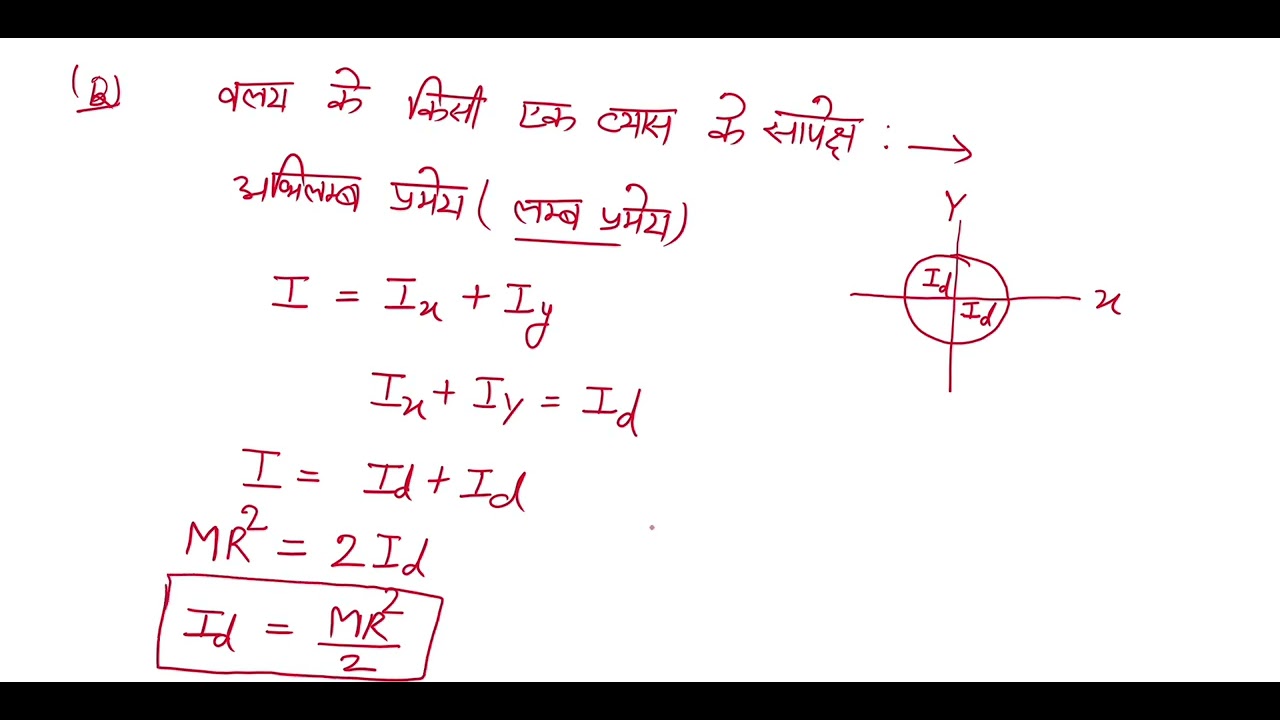 (B) वलय के किसी एक व्यास के सापेक्ष : →
अभिलम्ब प्रमेय ( लम्ब प्रमेय)
Y
I = Ix + Iy
Id
Id
x
Ix + Iy = Id
I = Id + Id
MR² = 2Id
Id = MR²/2